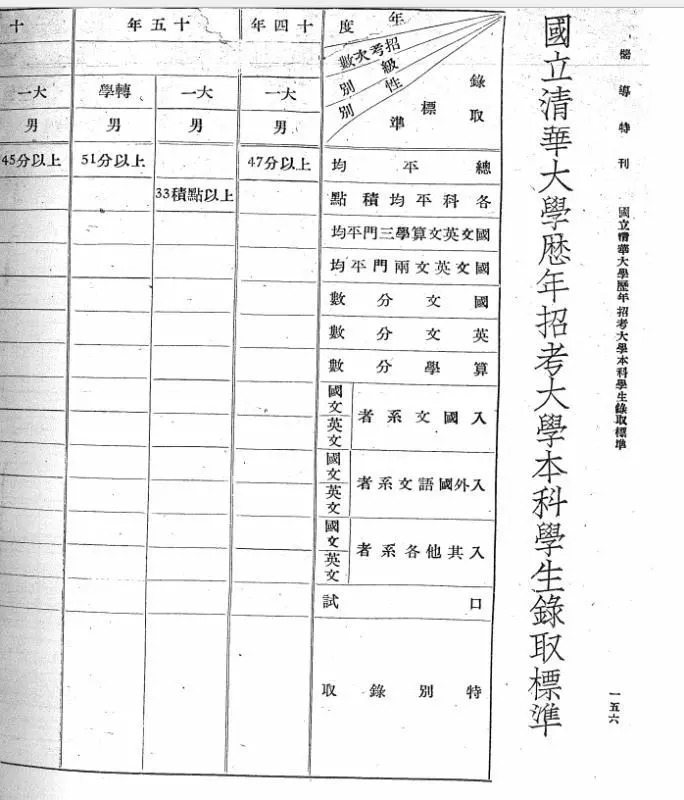 嚮導特刊　國立清華大學歷年招考大學本科學生錄取標準
一五六
國立清華大學歷年招考大學本科學生錄取標準
年度
招考次數
級別
性別
錄取標準
總平均
各科平均積點
國文英文算學三門平均
國文英文兩門平均
國文分數
英文分數
算學分數
入國文系者
國文
英文
入外國語文系者
國文
英文
入其他各系者
國文
英文
口試
特別錄取
十四年
大一
男
47分以上
十五年
大一
男
33積點以上
轉學
男
51分以上
十
大一
男
45分以上